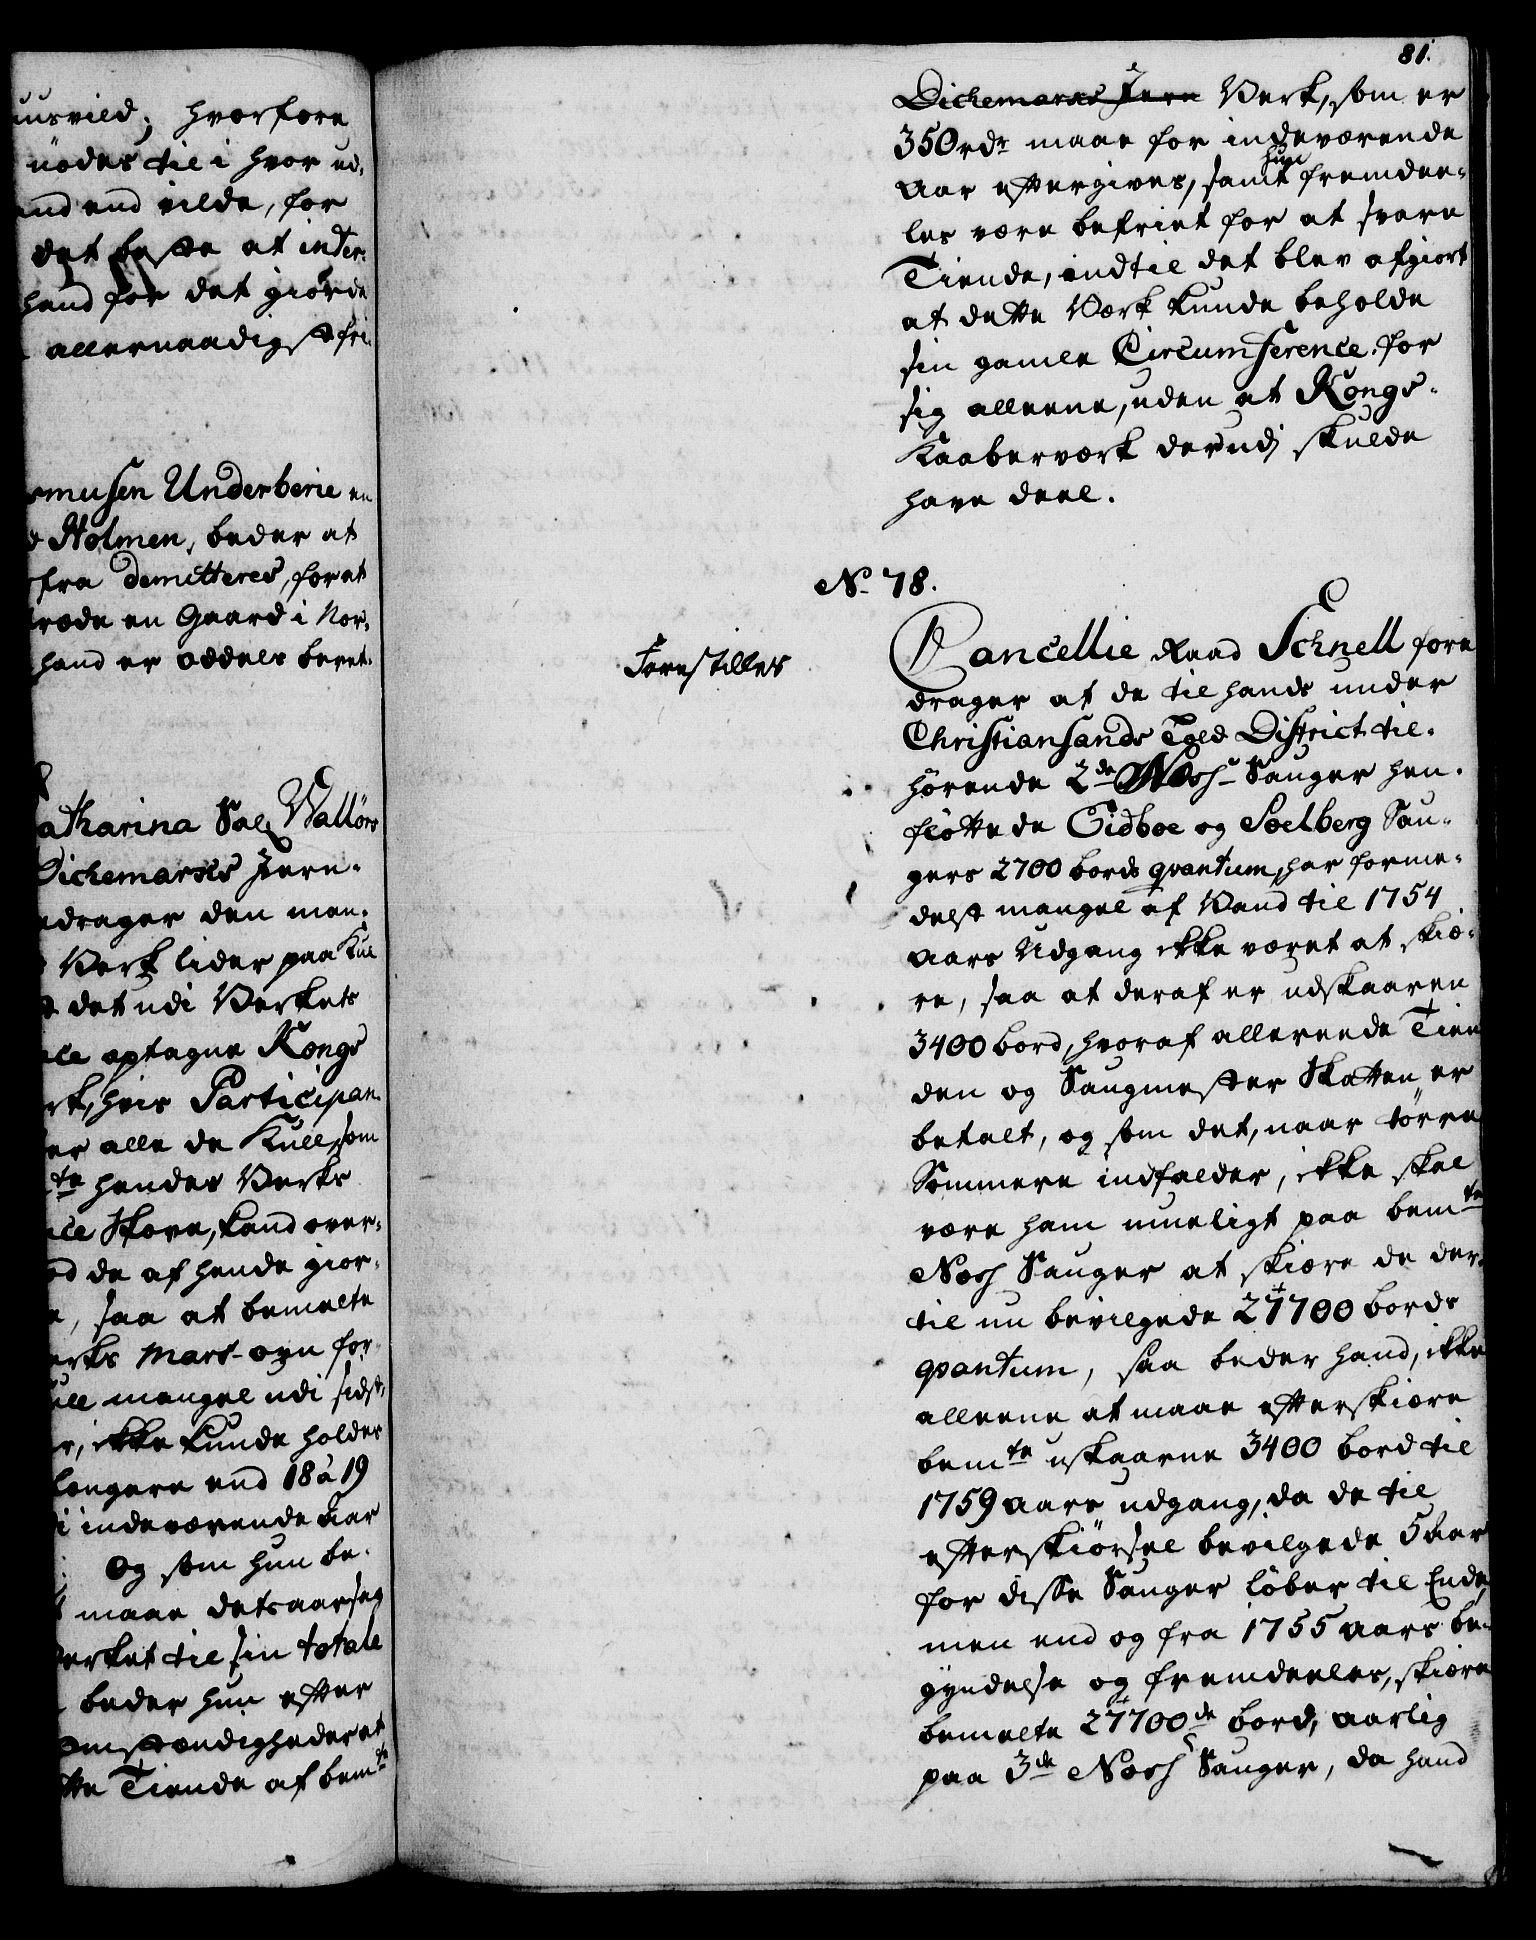 uusvild; hvorfore
nödes til i hvor ud,
end end vilde, for
det beste at inder,
hand for det giorde
allernaadigst fri,
rmusen Underberie en
Holmen, beder at
fra demitteres, for at
træde en Gaard i Nor,
hand er oddels beret,
atharina Sal: Wallörs
Dichemarks Jern-
edrager den man,
Verk lider paa Kul
det udi Verkets
ale optagne Kongs
rk, hvis Participan,
er alle de Kull, som
te hendes Verks
ale Skove, Land over,
ed de af hende gior,
e, saa at bemelte
erks Mars-ovn for,
ull mangel udi sidst,
r, ikke kunde holdes
længere end 18 à 19
i indeværende Aar
Og som hun be,
maae detsaarsag
Verket til sin totale
beder hun efter
omstændigheder at
te Tiende af bemte
81.
Dichemarks Jern Verk, som er
350 rdr maae for indeværende
Aar eftergives, samt hun fremdee,
les være befriet for at svare
Tiende, indtil det blev afgiort
at dette Værk kunde beholde
sin gamle Circumference for
sig alleene, uden at Kongs-
Kaaberværk derudj skulde
have deel.
No 78.
Forestilles
Cancellie Raad Schnell fore
drager at de til hands under
Christiansands Told District til,
hörende 2de Næss Sauger hen,
fløttede Eidboe og Soelberg Sau,
gers 2700 bords qvantum, har forme,
delst mangel af Vand til 1754
Aars Udgang ikke været at skiæ,
re, saa at deraf er udskaaren
3400 bord, hvoraf allereede Tien
den og Saugmester Skatten er
betalt, og som det, naar törre
Sommere indfalder, ikke skal
være ham mueligt paa bemte
Næss Sauger at skiære de der,
til nu bevilgede 24700 bords
qvantum, saa beder hand, ikke
alleene at maae efterskiære
bemte uskaarne 3400 bord til
1759 Aars udgang, da de til
efterskiørsel bevilgede 5 Aar
for disse Sauger löber til Ende,
men end og fra 1755 Aars be,
gyndelse og fremdeeles, skiære
bemelte 24700de bord, aarlig
paa 3de Næss Sauger, da hand